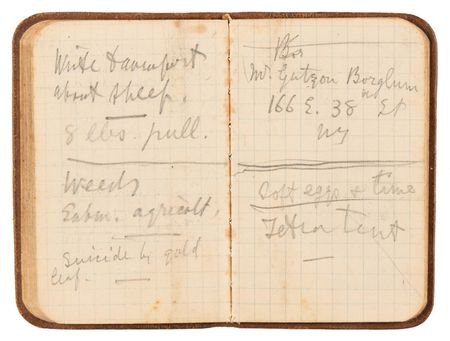 Write Davenport
about sheep.
8 lbs. pull.
Weeds
Eabm. agricolt.
Suicide by gold
leaf.
Box
Mr Gutzon Borglum
166 E. 38 St
NY
Soft eggs & time
Tetra tent